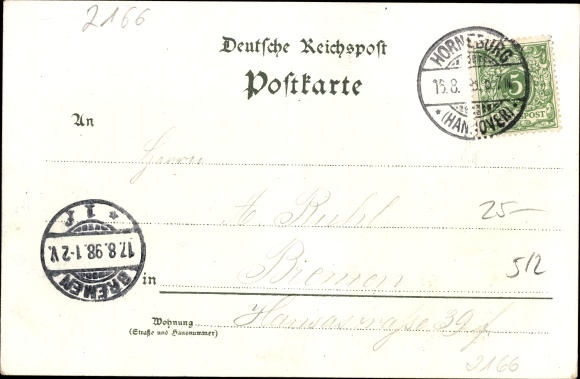 2166
Deutsche Reichspost
Postkarte
HORNEBURG
(HANNOVER)
5
POST
An
Herrn
A. Ruhl
25-
* 1 f
17.8.98.1-2 V.
BREMEN
in
Bremen
512
Hansastraße 39
Wohnung
(Straße und Hausnummer)
2166